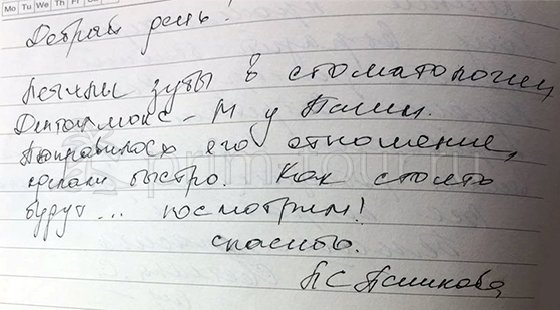 Mo Tu We Th Fr Sa Su
Добрый день!
Лечила зубы в стоматологии
Денталмакс-М у Полин.
Понравилось его отношение,
сделали быстро. Как стоять
будут... посмотрим!
спасибо.
ПС
prim-tour.ru